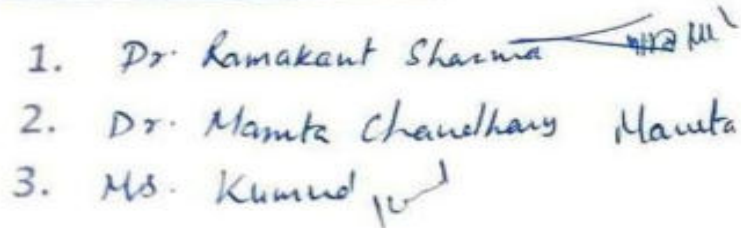 1. Dr. Ramakant Sharma
2. Dr. Mamta Chaudhary Mamta
3. Ms. Kumud